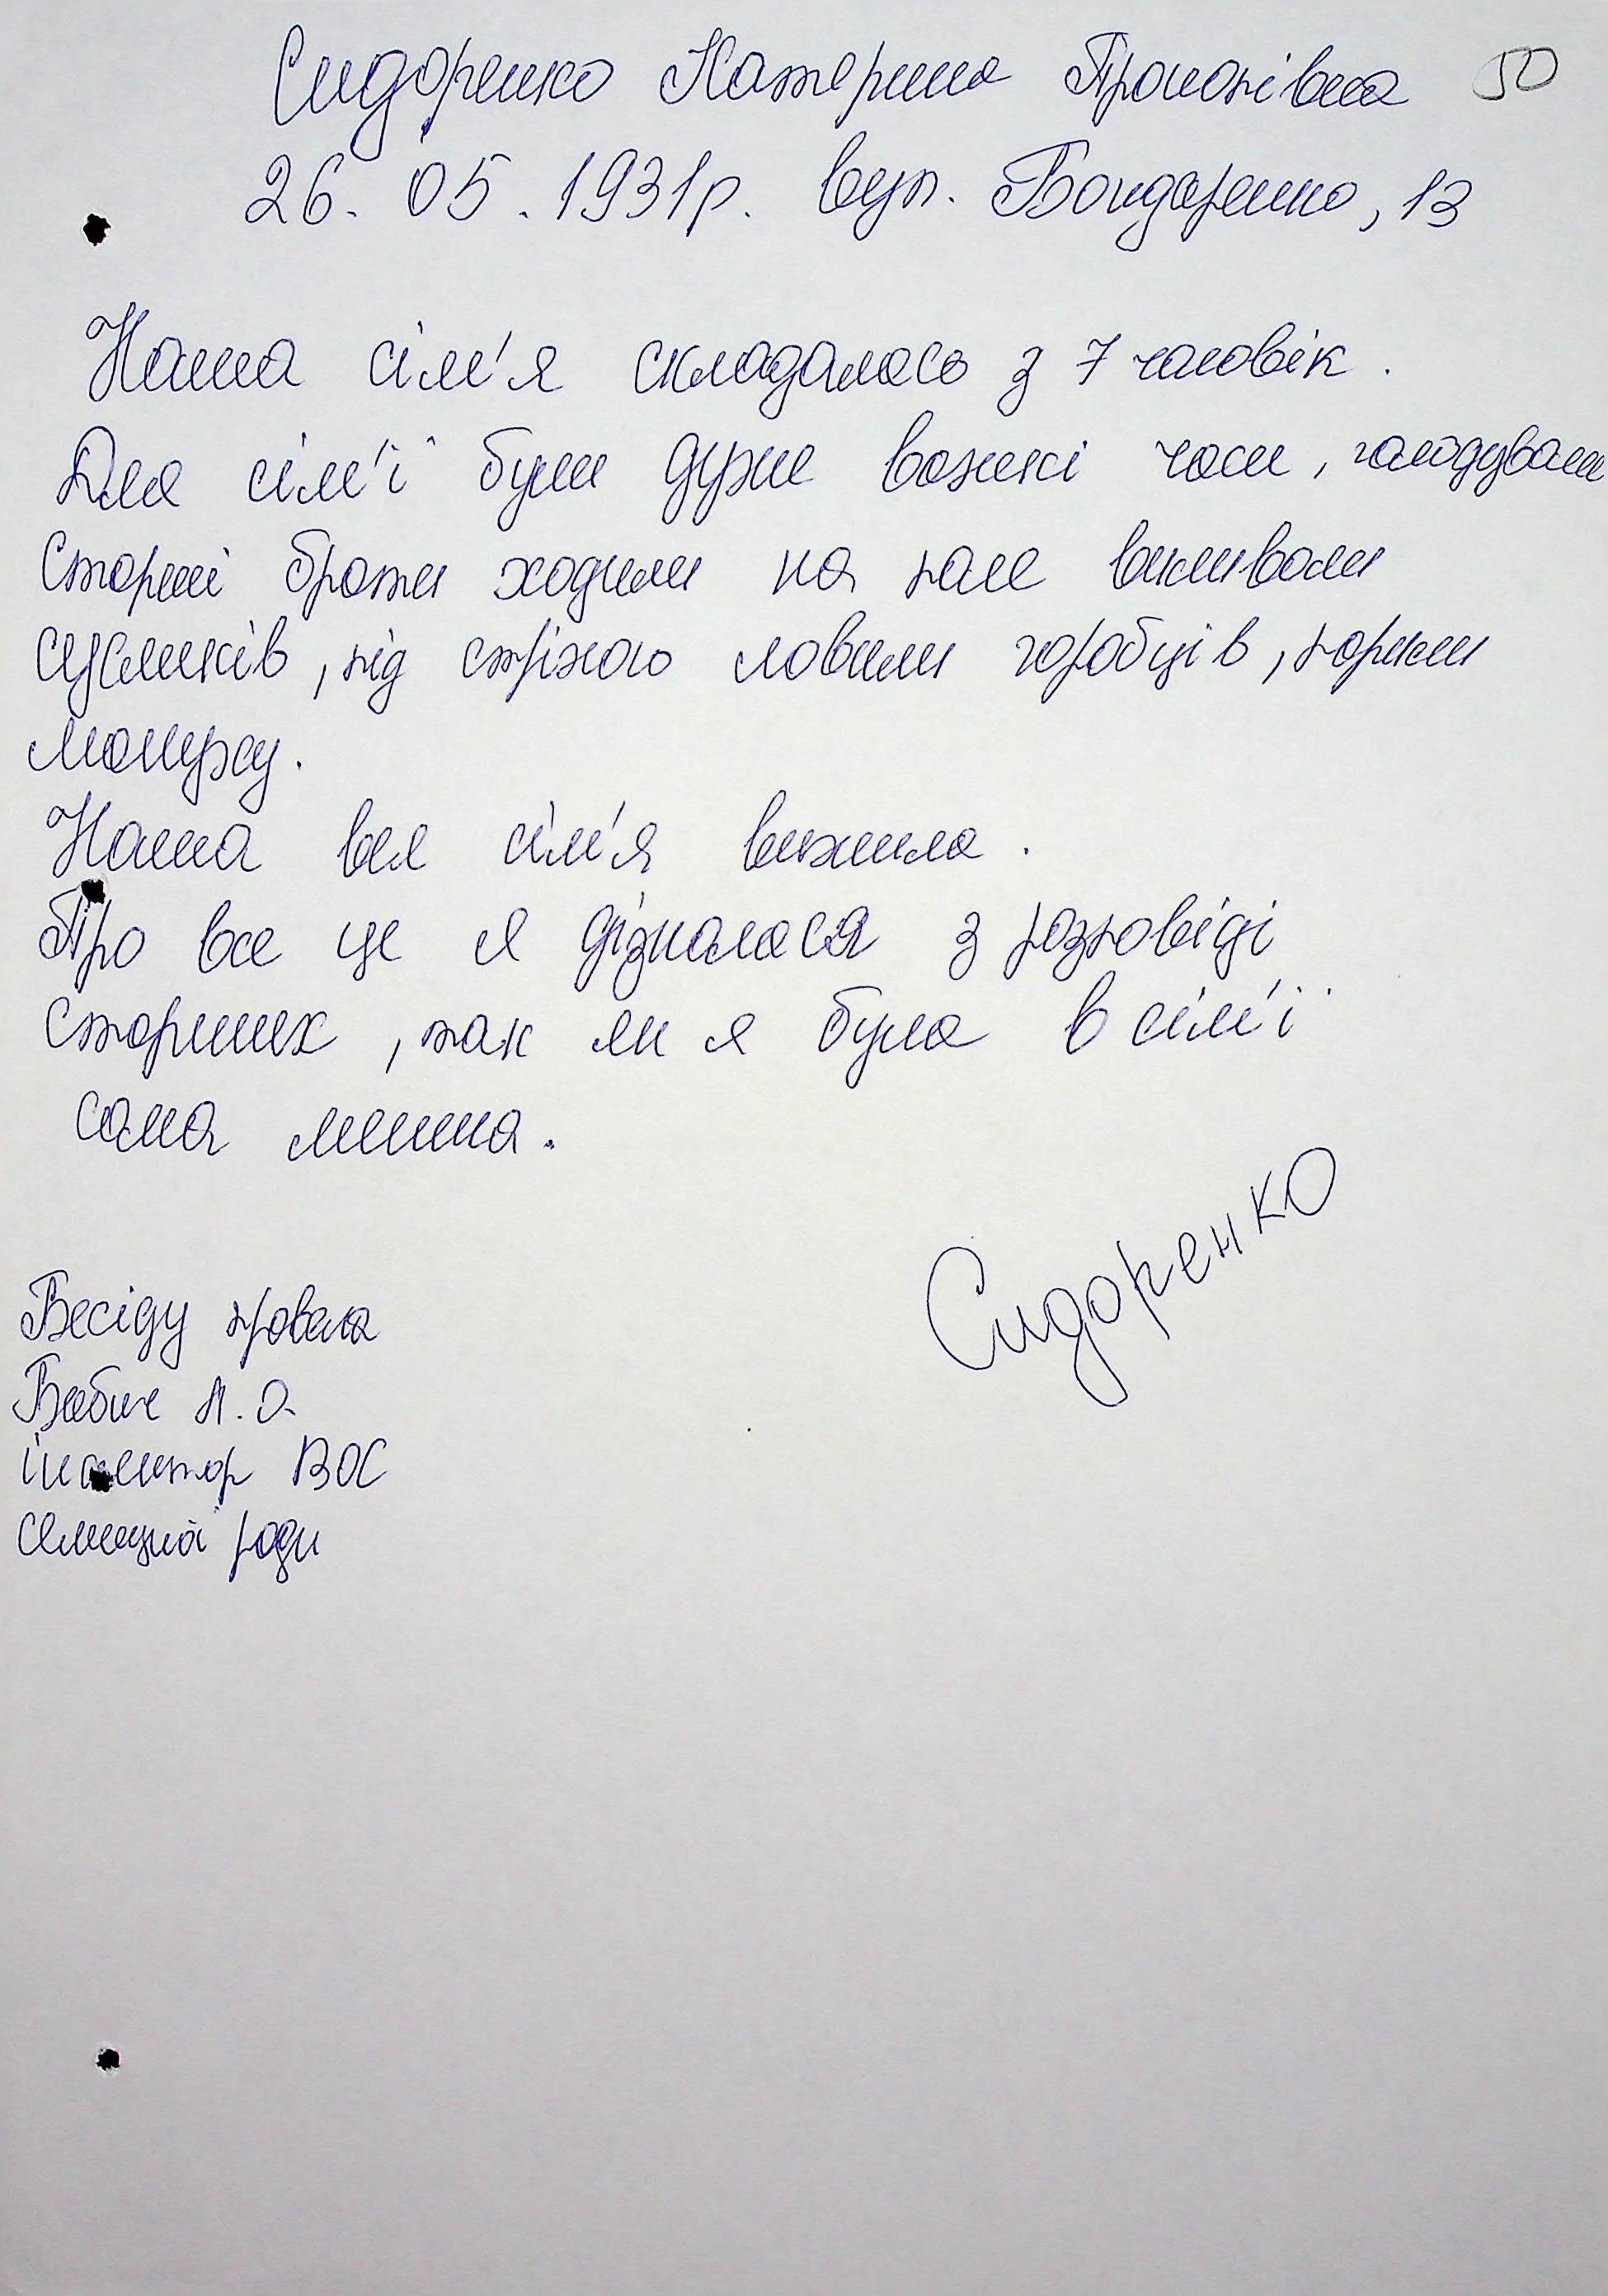 Сидоренко Катерина Прокопівна 50
26.05.1931р. вул. Бондаренко, 13
Наша сім'я складалась з 7 чоловік.
Для сім'ї були дуже важкі часи, голодували
Старші брати ходили на поле виливали
сусликів, під стріхою ловили горобців, варили
макуху.
Наша вся сім'я вижила.
Про все це я дізналася з розповіді
старших, так як я була в сім'ї
сама менша.
Сидоренко
Бесіду провела
Бабич Л.О.
інспектор ВОС
селищної ради